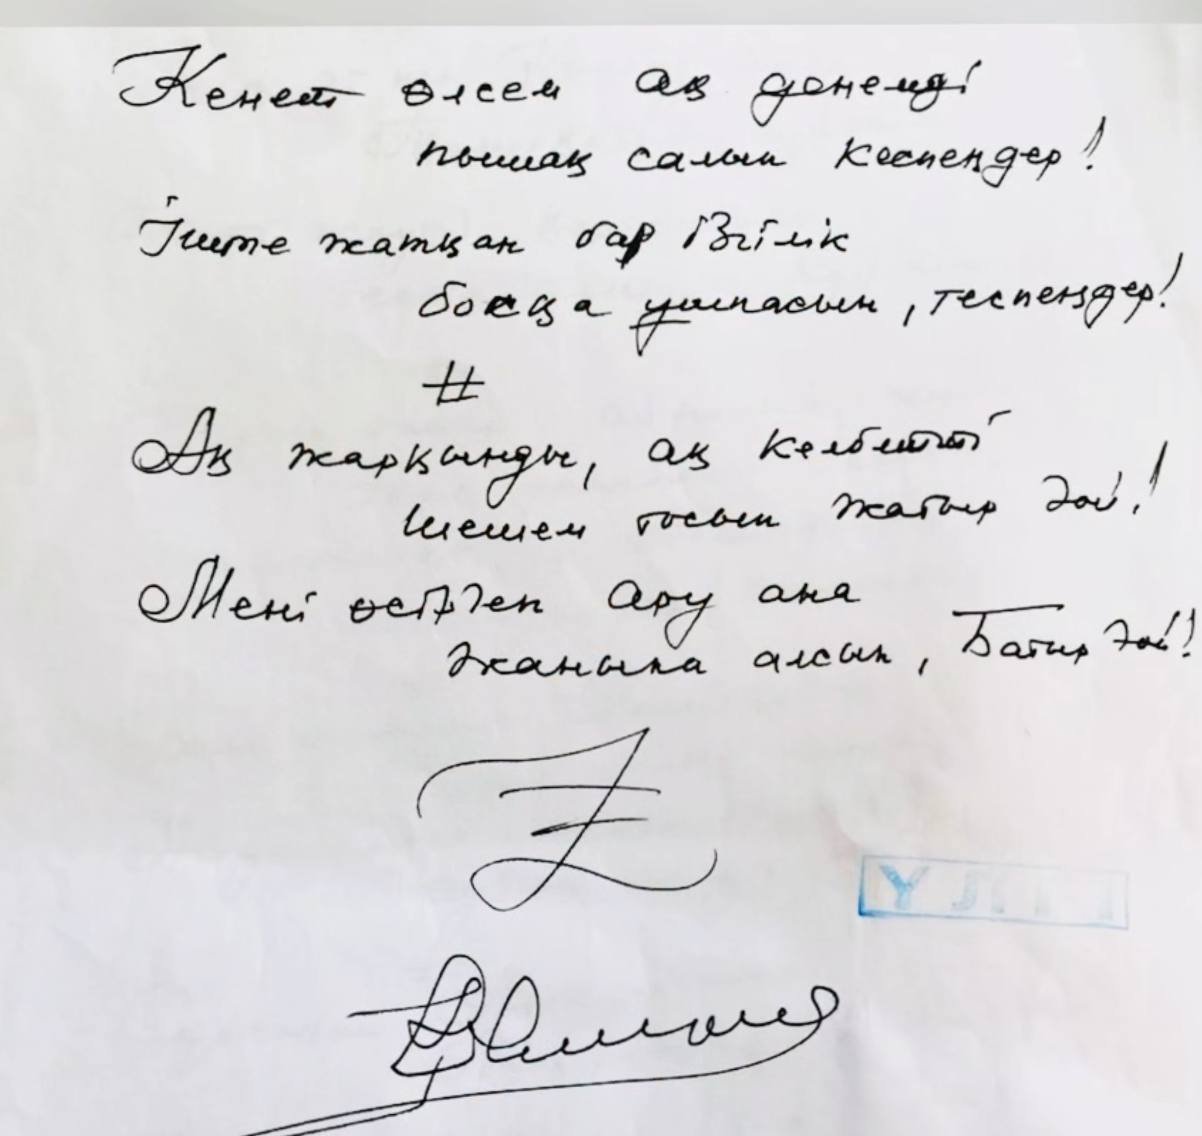 Кенет өлсем ақ денемді
пышақ салып кеспеңдер!
Іште жатқан бар ізгілік
босқа ұшпасын, теспеңдер!
#
Ақ жарқынды, ақ келбетті
шешем тосып жатыр ғой!
Мені өсірген ару ана
жаныма алсын, Батыр ғой!
ҮЛГІ